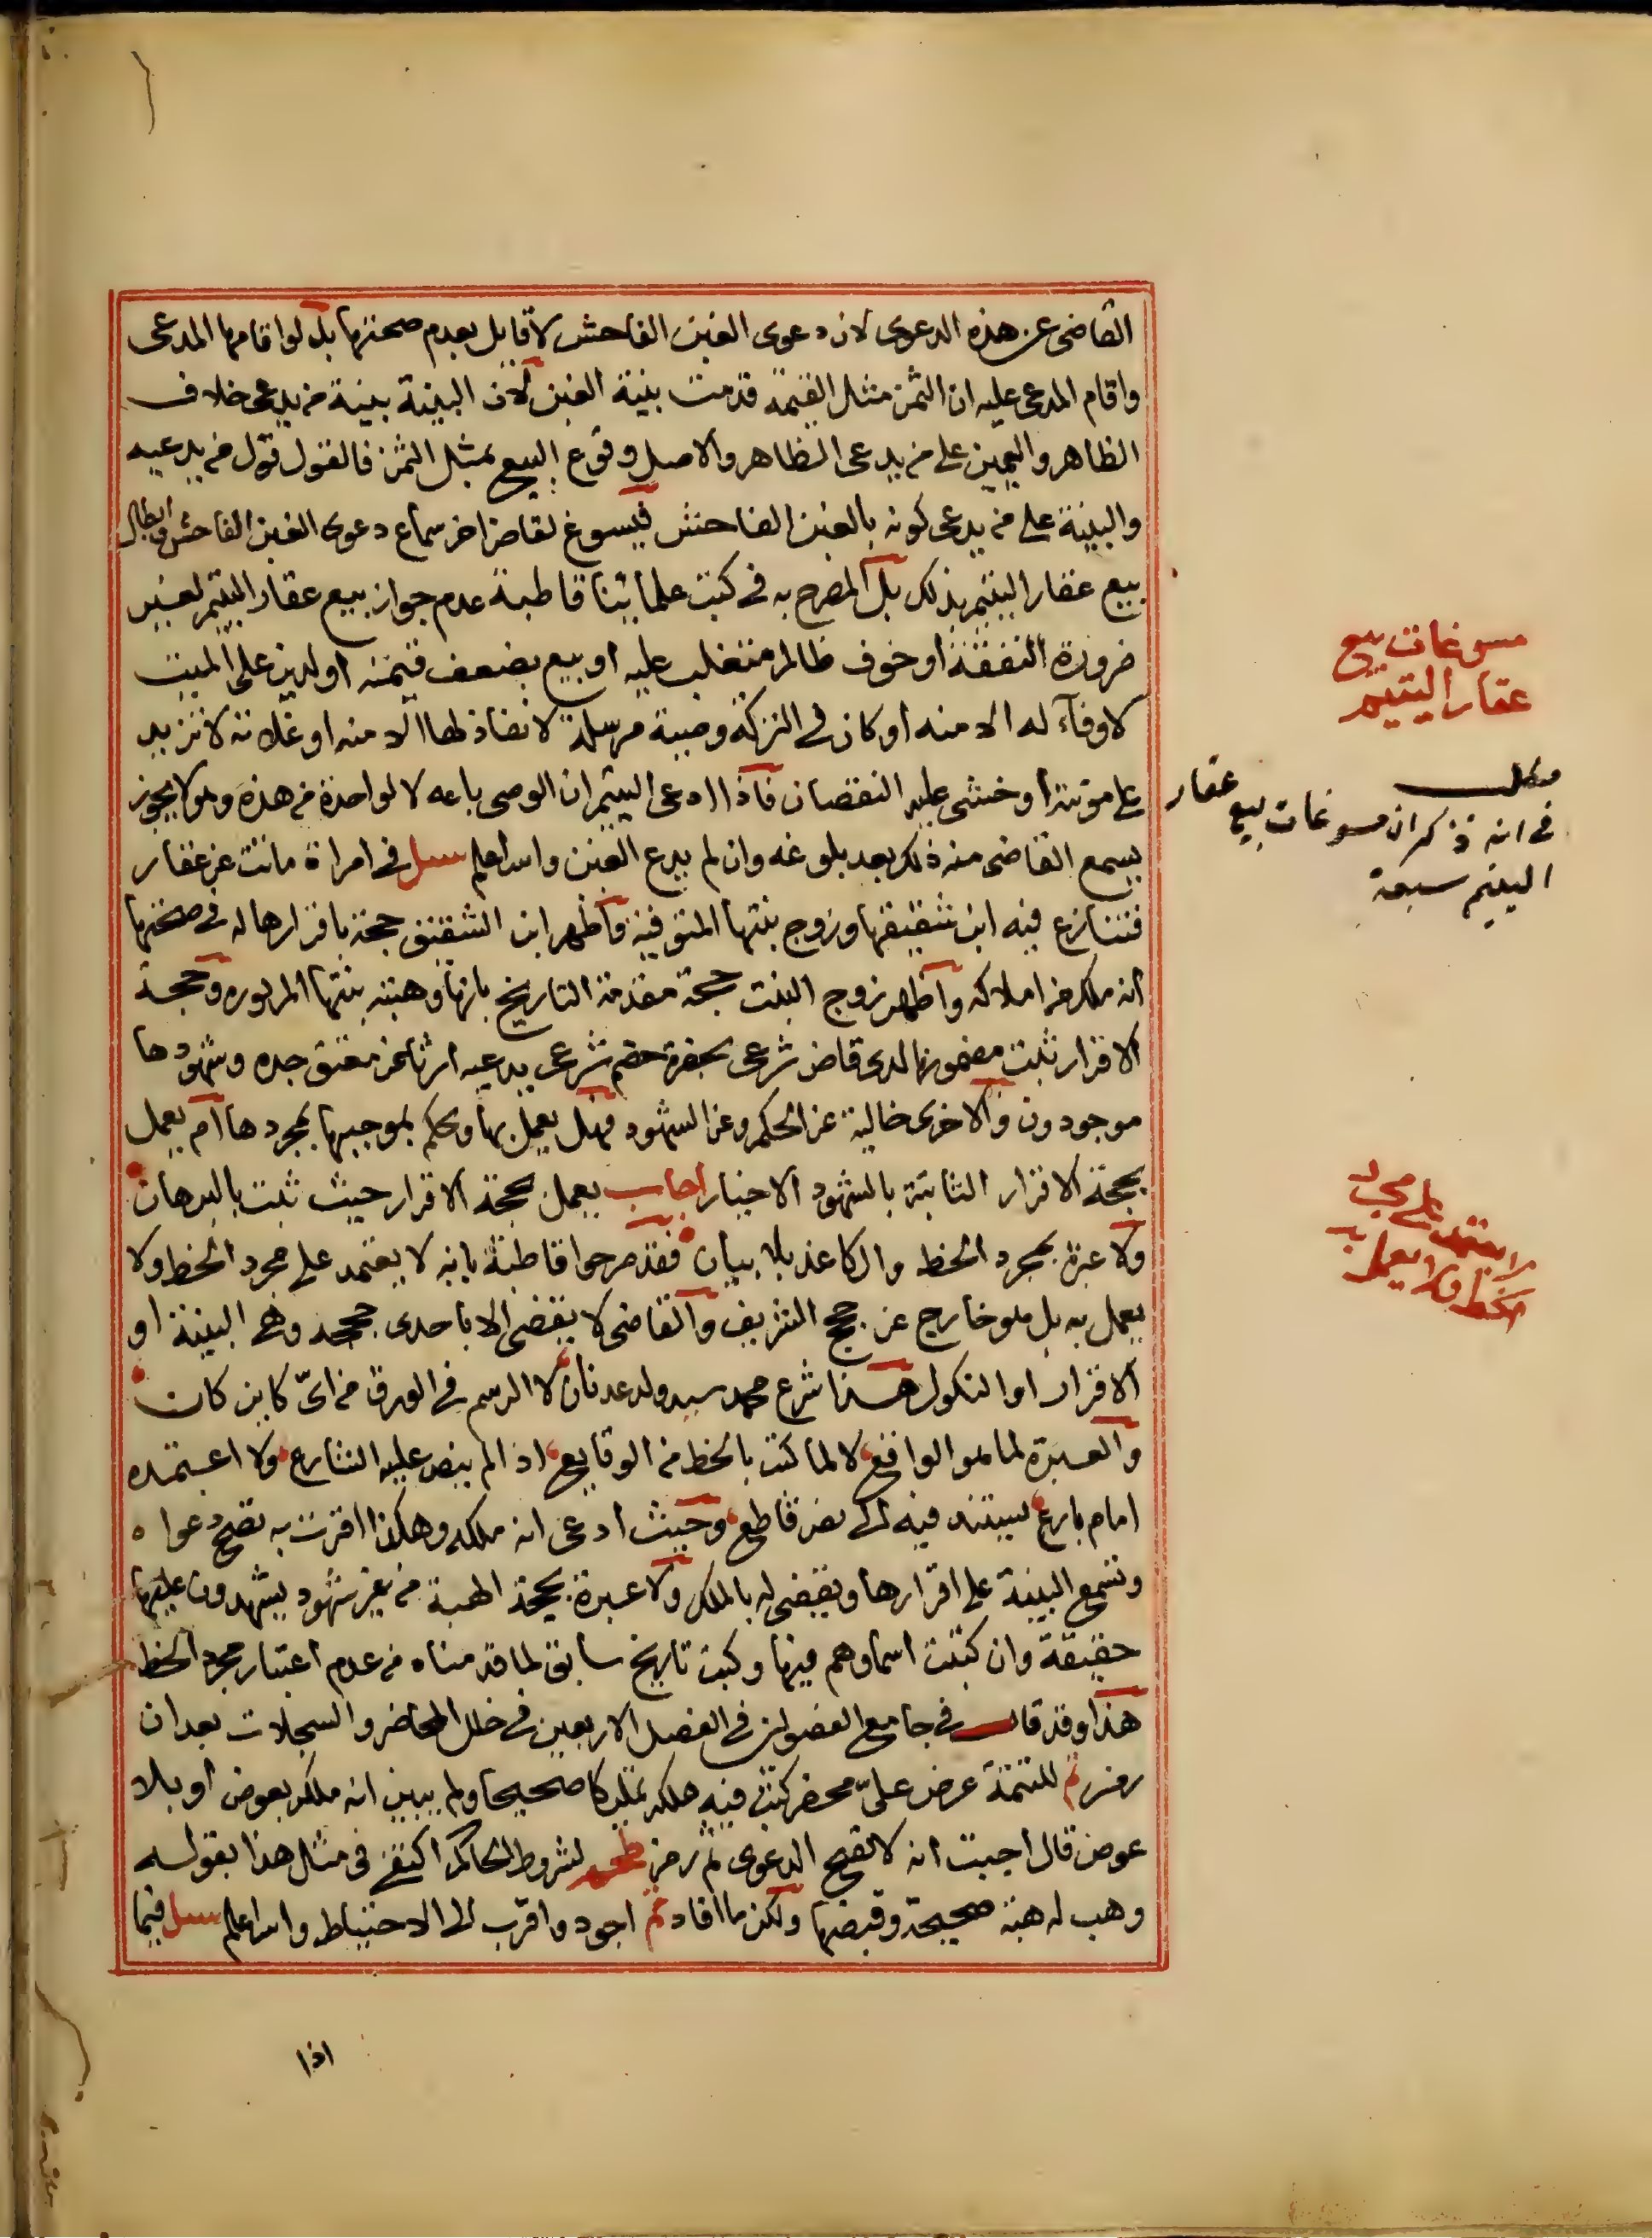 القاضى عن هذه الدعوى لان دعوى الغبن الفاحش لا قايل بعدم صحتها بل لو اقامها المدعى
واقام المدعى عليه ان الثمن مثل القيمة قدمت بينة الغبن لان البينة بينة من يدعى خلاف
الظاهر واليمين على من يدعى الظاهر والاصل وقوع البيع بمثل الثمن فالقول قول من يدعيه
والبينة على من يدعى كونه بالغبن الفاحش فيسوغ لقاض اخر سماع دعوى الغبن الفاحش وابطال
بيع عقار اليتيم بذلك بل المصرح به فى كتب علمائنا قاطبة عدم جواز بيع عقار اليتيم لغير
ضرورة النفقة او خوف ظالم متغلب عليه او بيع بضعف قيمته او لدين على الميت
لا وفآء له الا منه او كان فى التركة وصية مرسلة لا نفاذ لها الا منه او غلاته لا تزيد
على مونته او خشى عليه النقصان فاذا ادعى اليتيم ان الوصى باعه لا لواحدة من هذه وهو لا يجوز
يسمع القاضى منه ذلك بعد بلوغه وان لم يدع الغبن والله اعلم سئل فى امراة ماتت عن عقار
فتنازع فيه ابن شقيقها وزوج بنتها المتوفية فاظهر ابن الشقيق حجة باقرارها له فى صحتها
انه ملكه من املاكه واظهر زوج البنت حجة مقدمة التاريخ بانها وهبته بنتها المزبوره وحجة
الاقرار ثبت مضمونها لدى قاض شرعى بحضرة خصم شرعى يدعيه ارثا عن معتق جده وشهودها
موجودون والاخرى خالية عن الحكم وعن الشهود فهل يعمل بها ويحكم بموجبها بمجردها ام يعمل
بحجة الاقرار الثابتة بالشهود الاخيار اجاب يعمل بحجة الاقرار حيث ثبت بالبرهان
ولا عبرة بمجرد الخط والكاغذ بلا بيان فقد صرحوا قاطبة بانه لا يعتمد على مجرد الخط ولا
يعمل به بل هو خارج عن حجج الشريف والقاضى لا يقضى الا باحدى حججه وهى البينة او
الاقرار او النكول هذا شرع محمد سيد ولد عدنان لا الرسم فى الورق من اىّ كاين كان
والعبرة لما هو الواقع لا لما كتب بالخط من الوقايع اذ لم ينص عليه الشارع ولا اعتمده
امام بارع يستند فيه الى نص قاطع وحيث ادعى انه ملكه وهكذا اقرت به تصح دعواه
وتسمع البينة على اقرارها ويقضى له بالملك ولا عبرة بحجة الهبة من غير شهود يشهدون عليها
حقيقة وان كتبت اسماوهم فيها وكتب تاريخ سابق لما قدمناه من عدم اعتبار مجرد الخط
هذا وقد قال فى جامع الفصولين فى الفصل الاربعين فى خلل المحاضر والسجلات بعد ان
رمز تم للتتمة عرض علىّ محضر كتب فيه ملكه تمليكا صحيحا ولم يبين انه ملكه بعوض او بلا
عوض قال اجبت انه لا تصح الدعوى ثم رمز لشروط الحاكم اكتفى فى مثل هذا بقوله
وهب له هبة صحيحة وقبضها ولكن ما افاد تم اجود واقرب الى الاحتياط والله اعلم سئل فيما
اذا
مسوغات بيع
عقار اليتيم
مطلب
فى انه ذكر ان مسوغات بيع عقار
اليتيم سبعة
لا يعتمد على مجرد
الخط ولا يعمل به